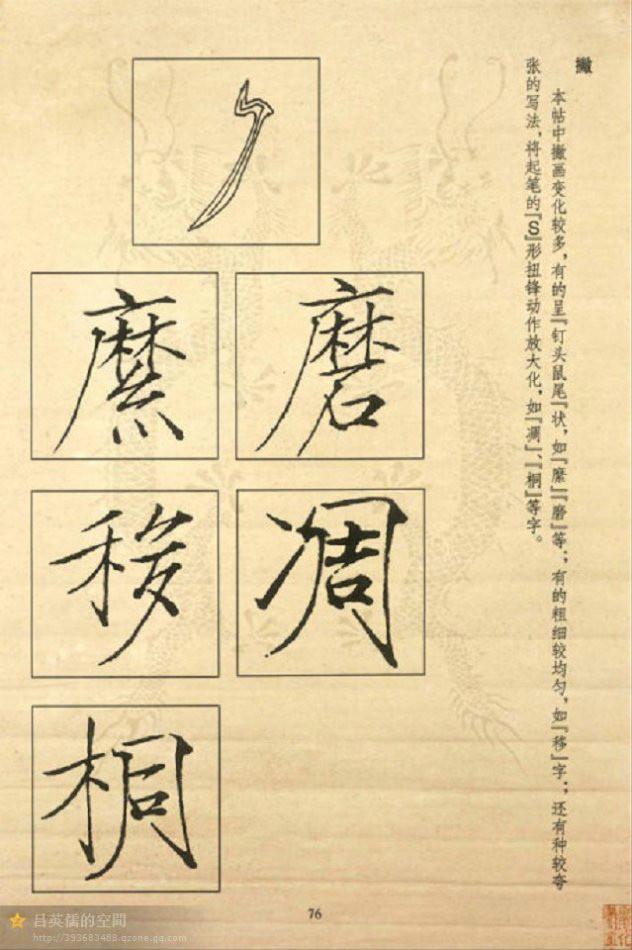 撇
本帖中撇画变化较多，有的呈『钉头鼠尾』状，如『縻』『磨』等；有的粗细较均匀，如『移』字；还有种较夸
张的写法，将起笔的『S』形扭锋动作放大化，如『凋』、『桐』等字。
磨
縻
凋
移
桐
76
吕英儒的空間
http://393683488.qzone.qq.com